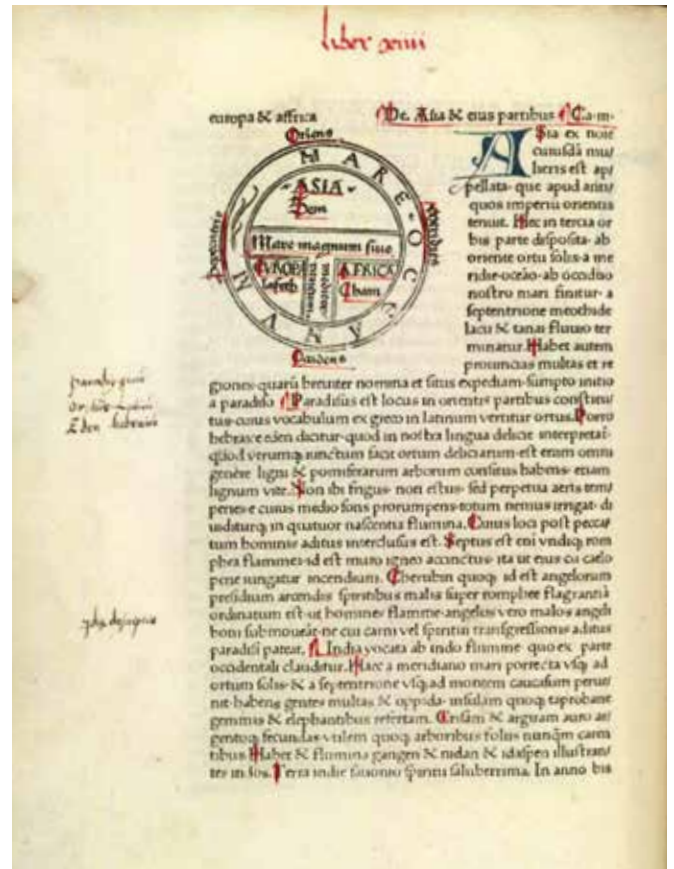 liber xiiii
europa & affrica
De. Asia & eius partibus Ca·iii·
Oriens
MARE OCCEANUM
ASIA
Sem
Mare magnum siue
EUROPA
Iafeth
mediterraneum
AFRICA
Cham
Septentrio
Meridies
Occidens
Asia ex noīe
cuiusdā mu/
lieris est ap/
pellata· que apud antiq/
quos imperiū orientis
tenuit. Hec in tercia or
bis parte disposita· ab
oriente ortu solis· a me
ridie· oceāo· ab occiduo
nostro mari finitur· a
septentrione meothide
lacu & tanai fluuio ter
minatur. Habet autem
prouincias multas et re
giones· quarū breuiter nomina et situs expediam· sumpto initio
a paradiso Paradisus est locus in orientis partibus constitu/
tus· cuius vocabulum ex greco in latinum vertitur ortus. Porro
hebraice eden dicitur· quod in nostra lingua delicie interpretat̄·
quod verumq; iunctum facit ortum deliciarum· est enim omni
genere ligni & pomiferarum arborum consitus habens· etiam
lignum vite. Non ibi frigus· non estus· sed perpetua aeris tem/
peries· e cuius medio fons prorumpens· totum nemus irrigat· di
uiditurq; in quatuor nascentia flumina. Cuius loci post peccat/
tum hominis aditus interclusus est. Septus est eni vndiq; rom
phea flammea· id est muro igneo accinctus· ita ut eius cū caelo
pene iungatur incendium. Cherubin quoq; id est angelorum
presidium arcendis spiritibus malis super romphee flagrantiā
ordinatum est· ut homines flamme· angelos vero malos angeli
boni submoueāt· ne cui carni vel spiritui transgressionis aditus
paradisi pateat. India vocata ab indo flumine· quo ex parte
occidentali clauditur. Haec a meridiano mari porrecta vsq; ad
ortum solis· & a septentrione vsq; ad montem caucasum peruē/
nit· habens gentes multas & oppida· insulam quoq; taprobane
gemmis & elephantibus refertam. Crisam & argiram auro ar/
gentoq; fecundas· vtilem quoq; arboribus foliis nunq̄m caren
tibus Habet & flumina gangen & nidan & idaspen illustran/
tes indos. Terra indie fauonio spiritu saluberrima. In anno bis